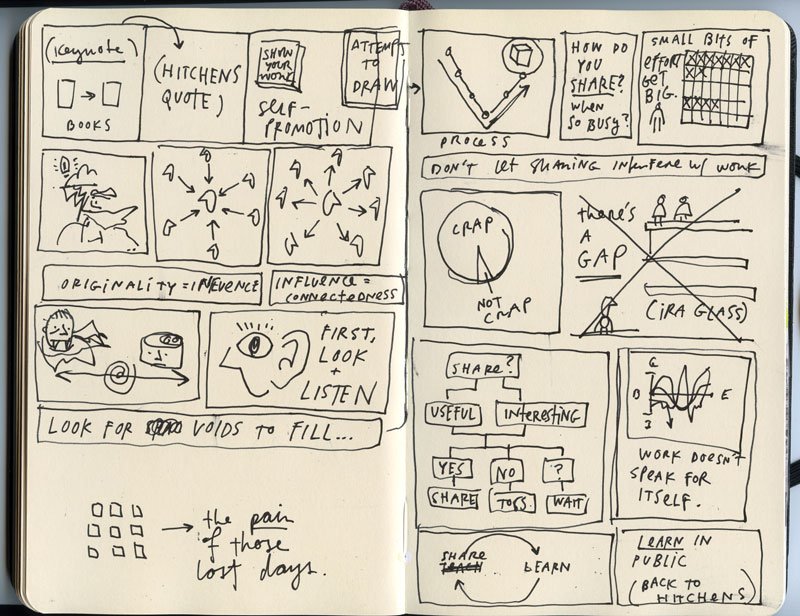 (KEYNOTE)
BOOKS
(HITCHENS
QUOTE)
SHOW
YOUR
WORK
SELF-
PROMOTION
ATTEMPT
TO
DRAW
ORIGINALITY = INFLUENCE
INFLUENCE =
CONNECTEDNESS
@
FIRST,
LOOK
+
LISTEN
LOOK FOR VOIDS TO FILL...
the pain
of those
lost days.
PROCESS
HOW DO
YOU
SHARE?
when
SO BUSY?
SMALL BITS OF
effort
GET
BIG.
DON'T let sharing interfere w/ work
CRAP
NOT
CRAP
there's
A
GAP
(IRA GLASS)
SHARE?
USEFUL
INTERESTING
YES
NO
?
SHARE
TOSS
WAIT
G
B
E
I
WORK DOESN'T
SPEAK FOR
ITSELF.
SHARE
TEACH
LEARN
LEARN IN
PUBLIC
(BACK TO
HITCHENS)